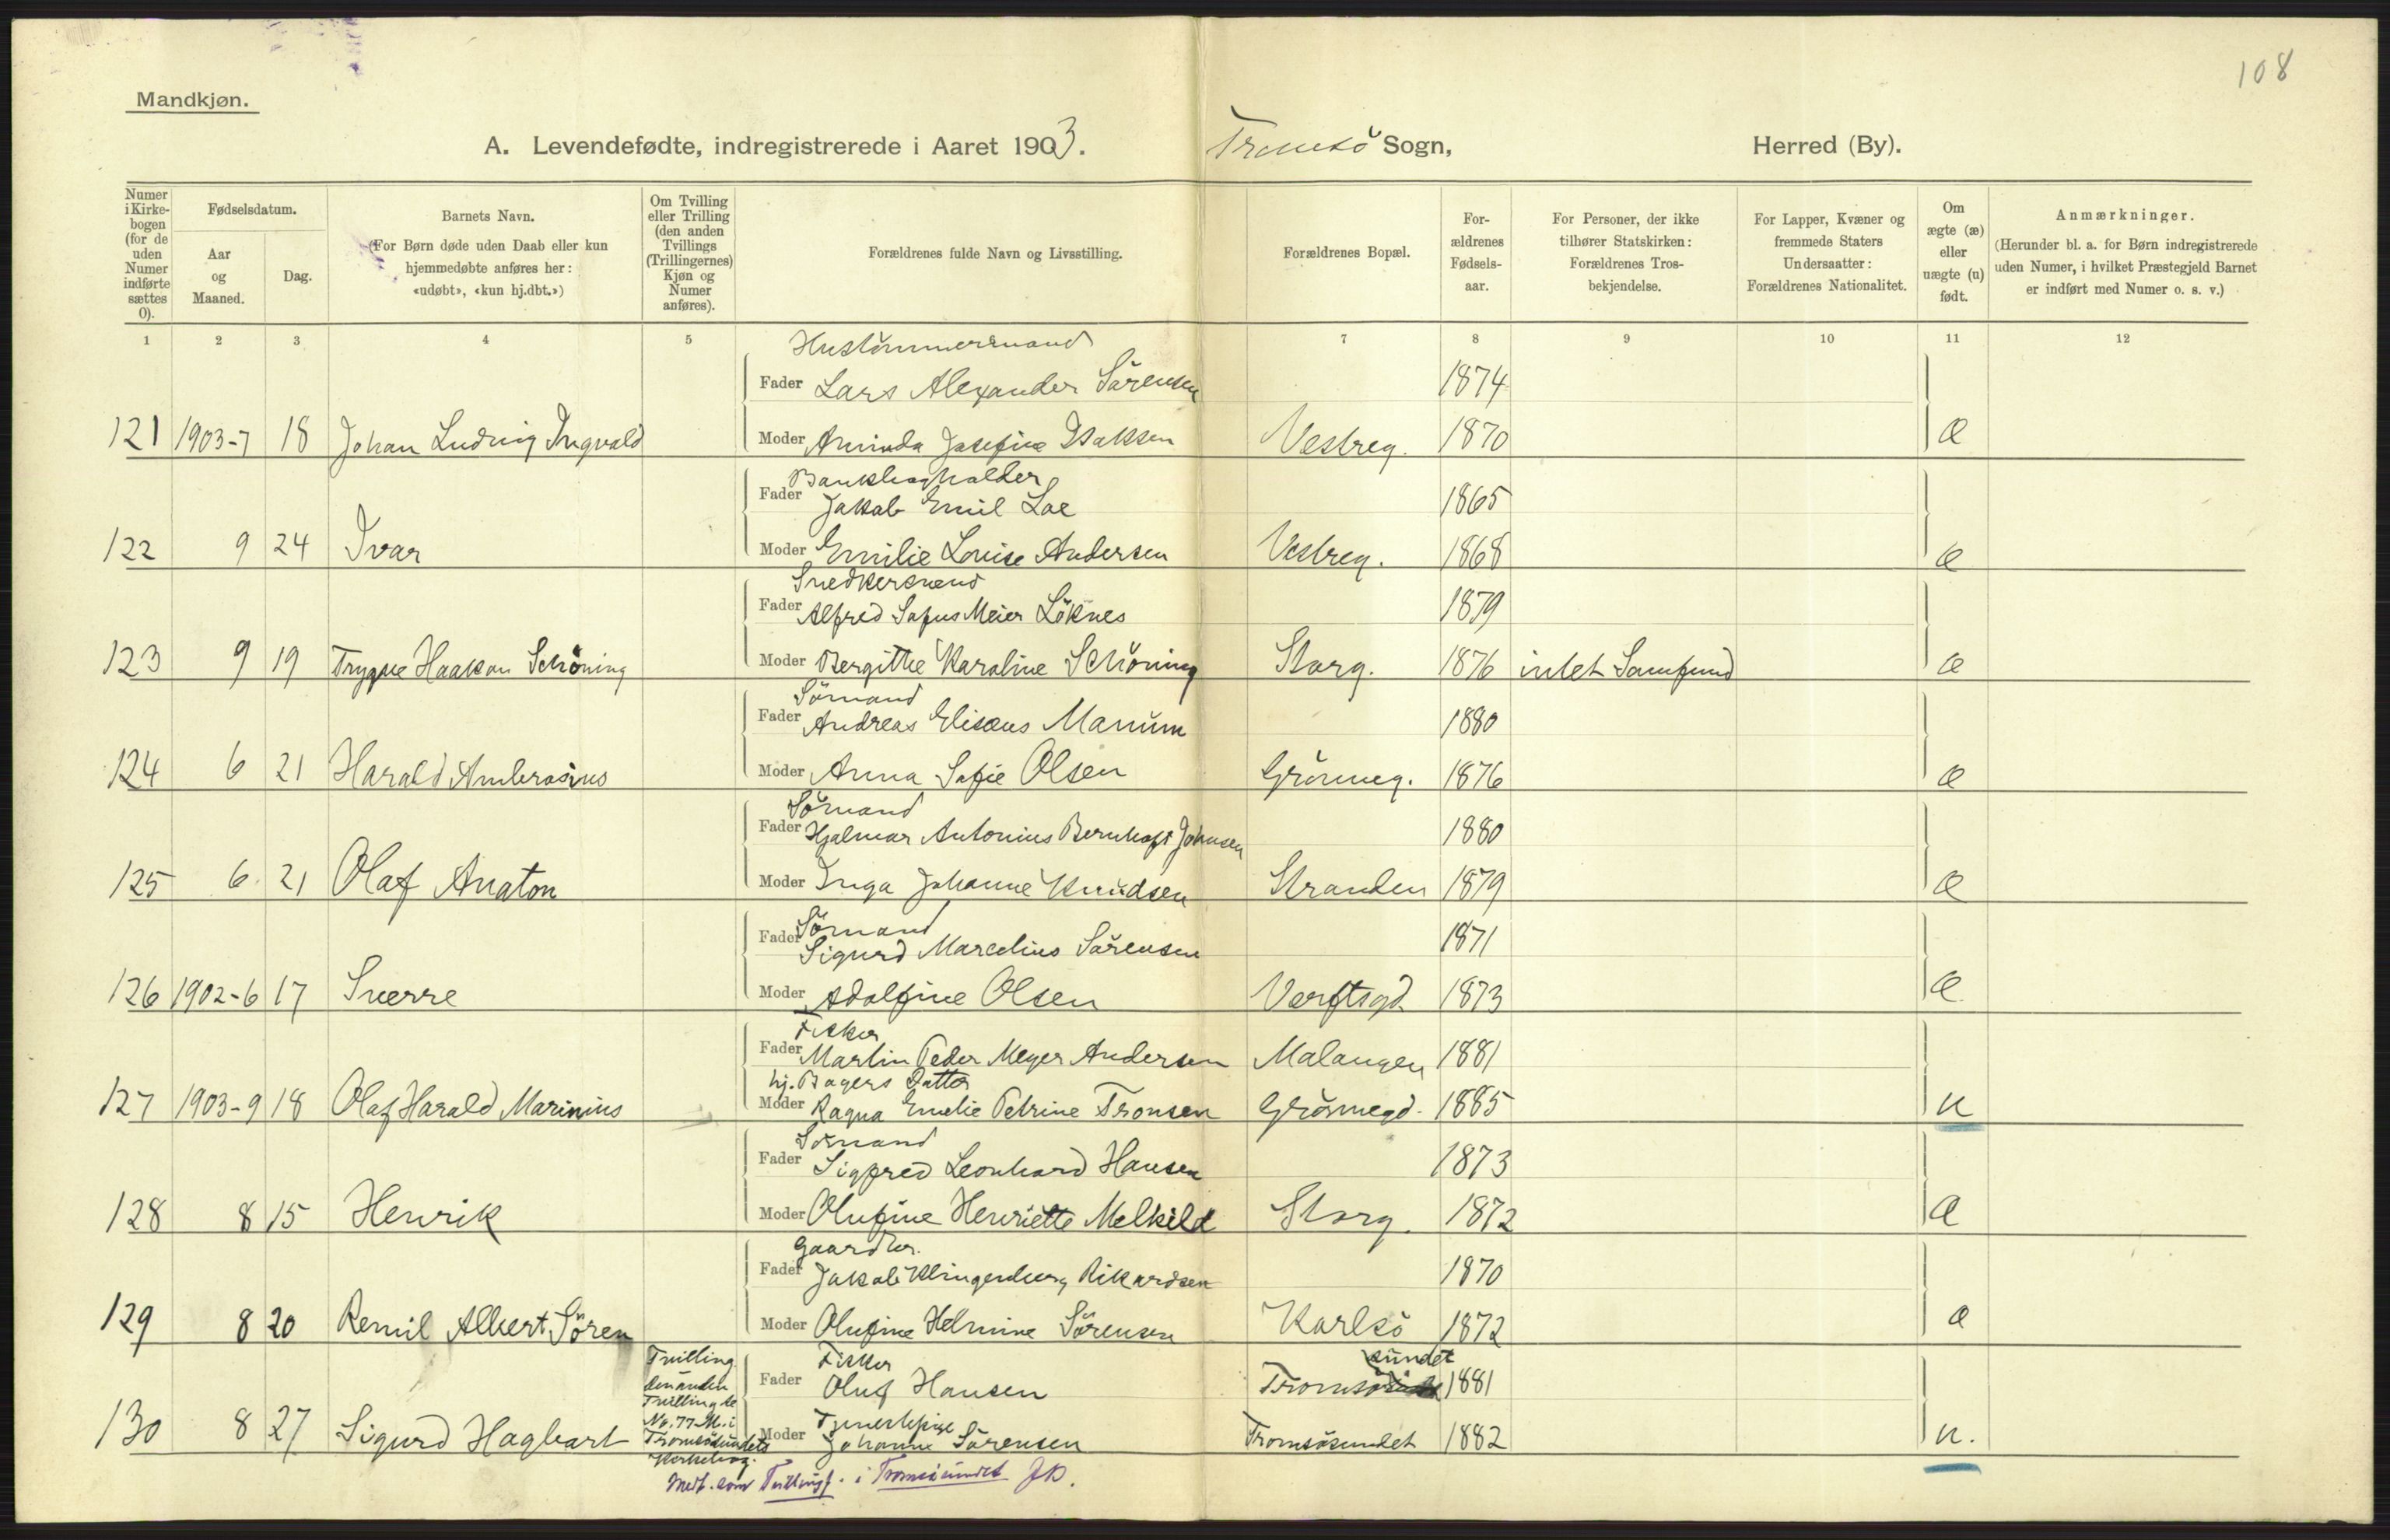 108
Mandkjøn.
A. Levendefødte, indregistrerede i Aaret 1903. Tromsö Sogn, Herred (By).
Numer i Kirke-bogen (for de uden Numer indførte sættes 0).
Fødselsdatum.
Aar og Maaned.
Dag.
Barnets Navn.
(For Børn døde uden Daab eller kun hjemmedøbte anføres her: «udøbt», «kun hj.dbt.»)
Om Tvilling eller Trilling (den anden Tvillings (Trillingernes) Kjøn og Numer anføres).
Forældrenes fulde Navn og Livsstilling.
Forældrenes Bopæl.
For-ældrenes Fødsels-aar.
For Personer, der ikke tilhører Statskirken: Forældrenes Tros-bekjendelse.
For Lapper, Kvæner og fremmede Staters Undersaatter: Forældrenes Nationalitet.
Om ægte (æ) eller uægte (u) født.
Anmærkninger.
(Herunder bl. a. for Børn indregistrerede uden Numer, i hvilket Præstegjeld Barnet er indført med Numer o. s. v.)
1 2 3 4 5 7 8 9 10 11 12
Hustömmermand
Fader Lars Alexander Sörensen 1874
121 1903-7 18 Johan Ludvig Ingvald Moder Aminda Josefine Isaksen Vestreg. 1870 æ
Bankbogholder
Fader Jakob Emil Loe 1865
122 9 24 Ivar Moder Emilie Louise Andersen Vestreg. 1868 æ
Snedkersvend
Fader Alfred Sofus Meier Löknes 1879
123 9 19 Trygve Haakon Schöning Moder Bergithe Karoline Schöning Storg. 1876 intet Samfund æ
Sömand
Fader Andreas Eliseus Manum 1880
124 6 21 Harald Ambrosius Moder Anna Sofie Olsen Grönneg. 1876 æ
Sömand
Fader Hjalmar Antonius Bernhoft Johnsen 1880
125 6 21 Olaf Anaton Moder Inga Johanne Knudsen Stranden 1879 æ
Sömand
Fader Sigurd Marcelius Sörensen 1871
126 1902-6 17 Sverre Moder Adolfine Olsen Verftsgd. 1873 æ
Fisker
Fader Martin Peder Meyer Andersen Malangen 1881
hj. Bagers Datter
127 1903-9 18 Olaf Harald Marinius Moder Ragna Emelie Petrine Tronsen Grönnegd. 1885 u
Sömand
Fader Sigfred Leonhard Hansen 1873
128 8 15 Henrik Moder Olufine Henriette Melkild Storg. 1872 æ
Gaardbr.
Fader Jakob Klingenberg Rikardsen 1870
129 8 20 Remil Albert Sören Moder Olufine Helmine Sörensen Karlsö 1872 æ
Tvilling
den anden
Tvilling se
No. 77 M. i
Tromsösundets
Kirkebog.
Fisker
Fader Oluf Hansen Tromsösundet 1881
Tjenestepige
130 8 27 Sigurd Hagbart Moder Johanne Sörensen Tromsösundet 1882 u.
Medt. som Tvillingf. i Tromsösundet